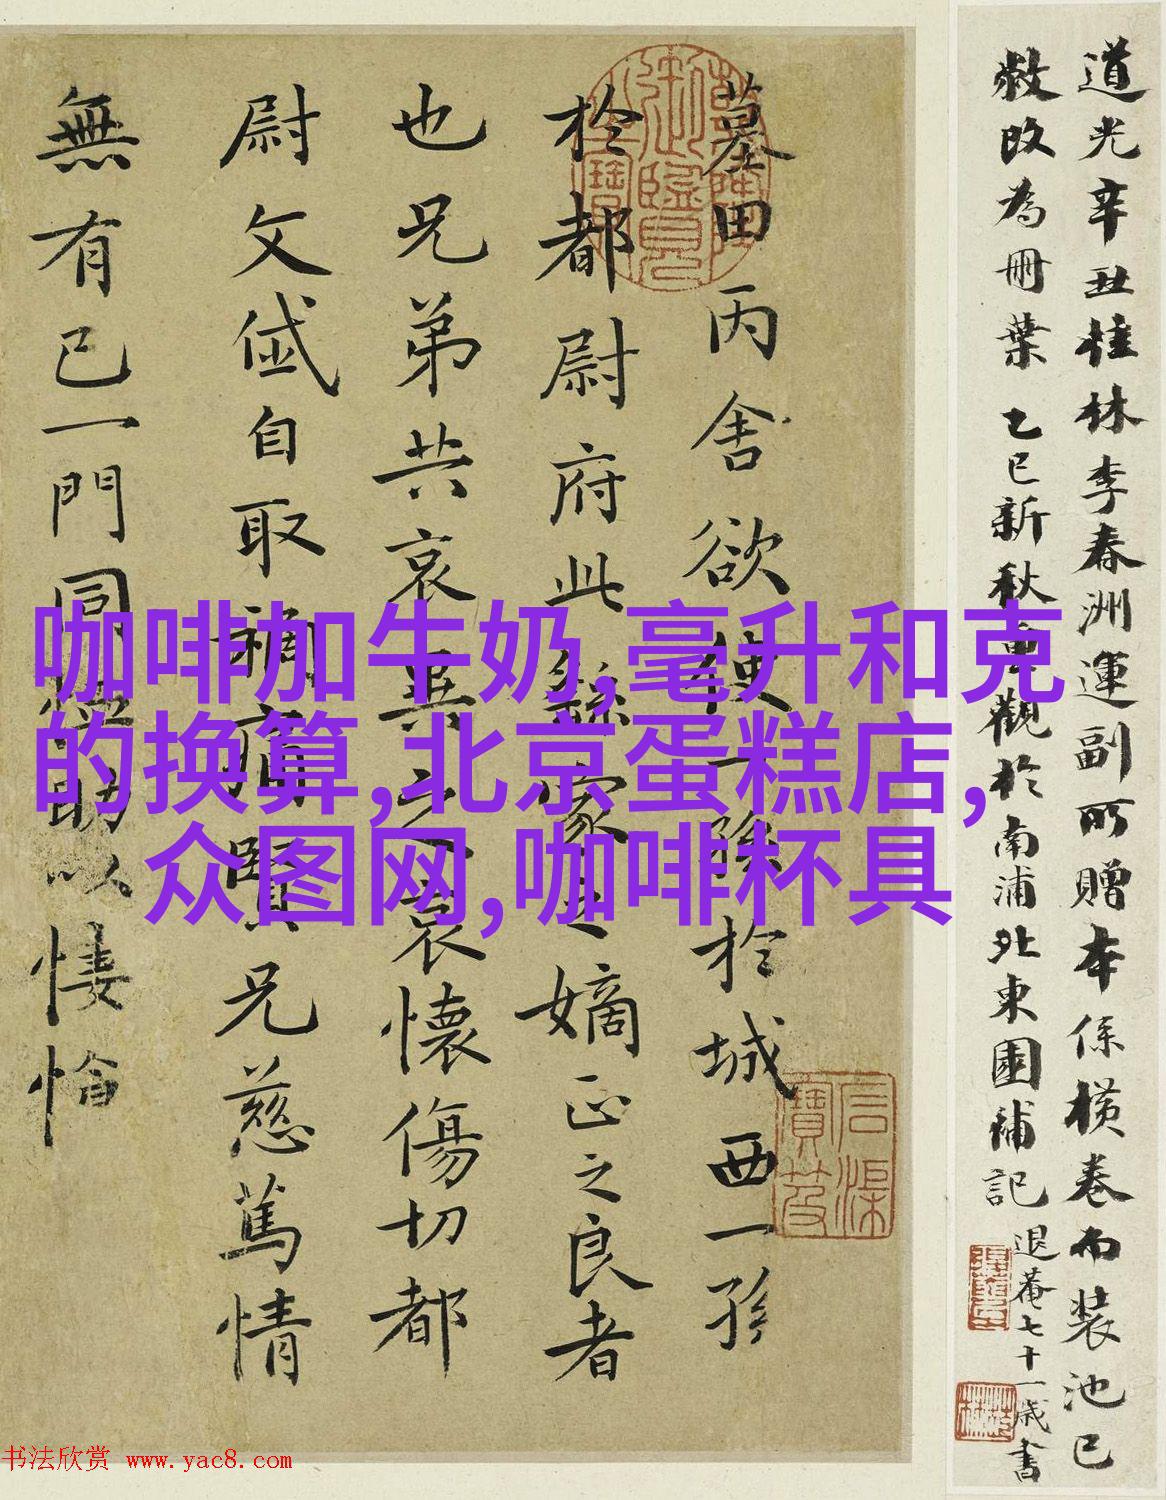 道光辛丑桂林李春洲運副所贈本係橫卷而裝池已
敝改為冊葉 乙巳新秋重觀於南浦北東園補記
退菴七十一歲書
墓田丙舍欲使一孫於城西一孫
於都尉府此繇家之嫡正之良者
也兄弟共哀異之哀懷傷切都
尉文岱自取禍痛賢兄慈篤情
無有已一門同恤助以悽愴
咖啡加牛奶,毫升和克
的换算,北京蛋糕店,
众图网,咖啡杯具
书法欣赏 www.yac8.com